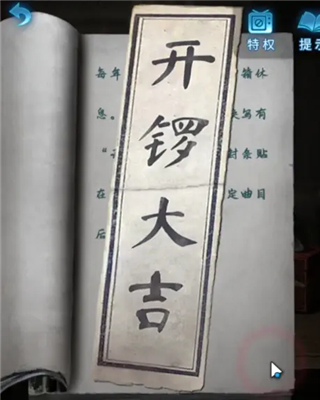 特权
提示
开锣大吉
每年
翰休
息。
写有
封条贴
在
定曲目
后